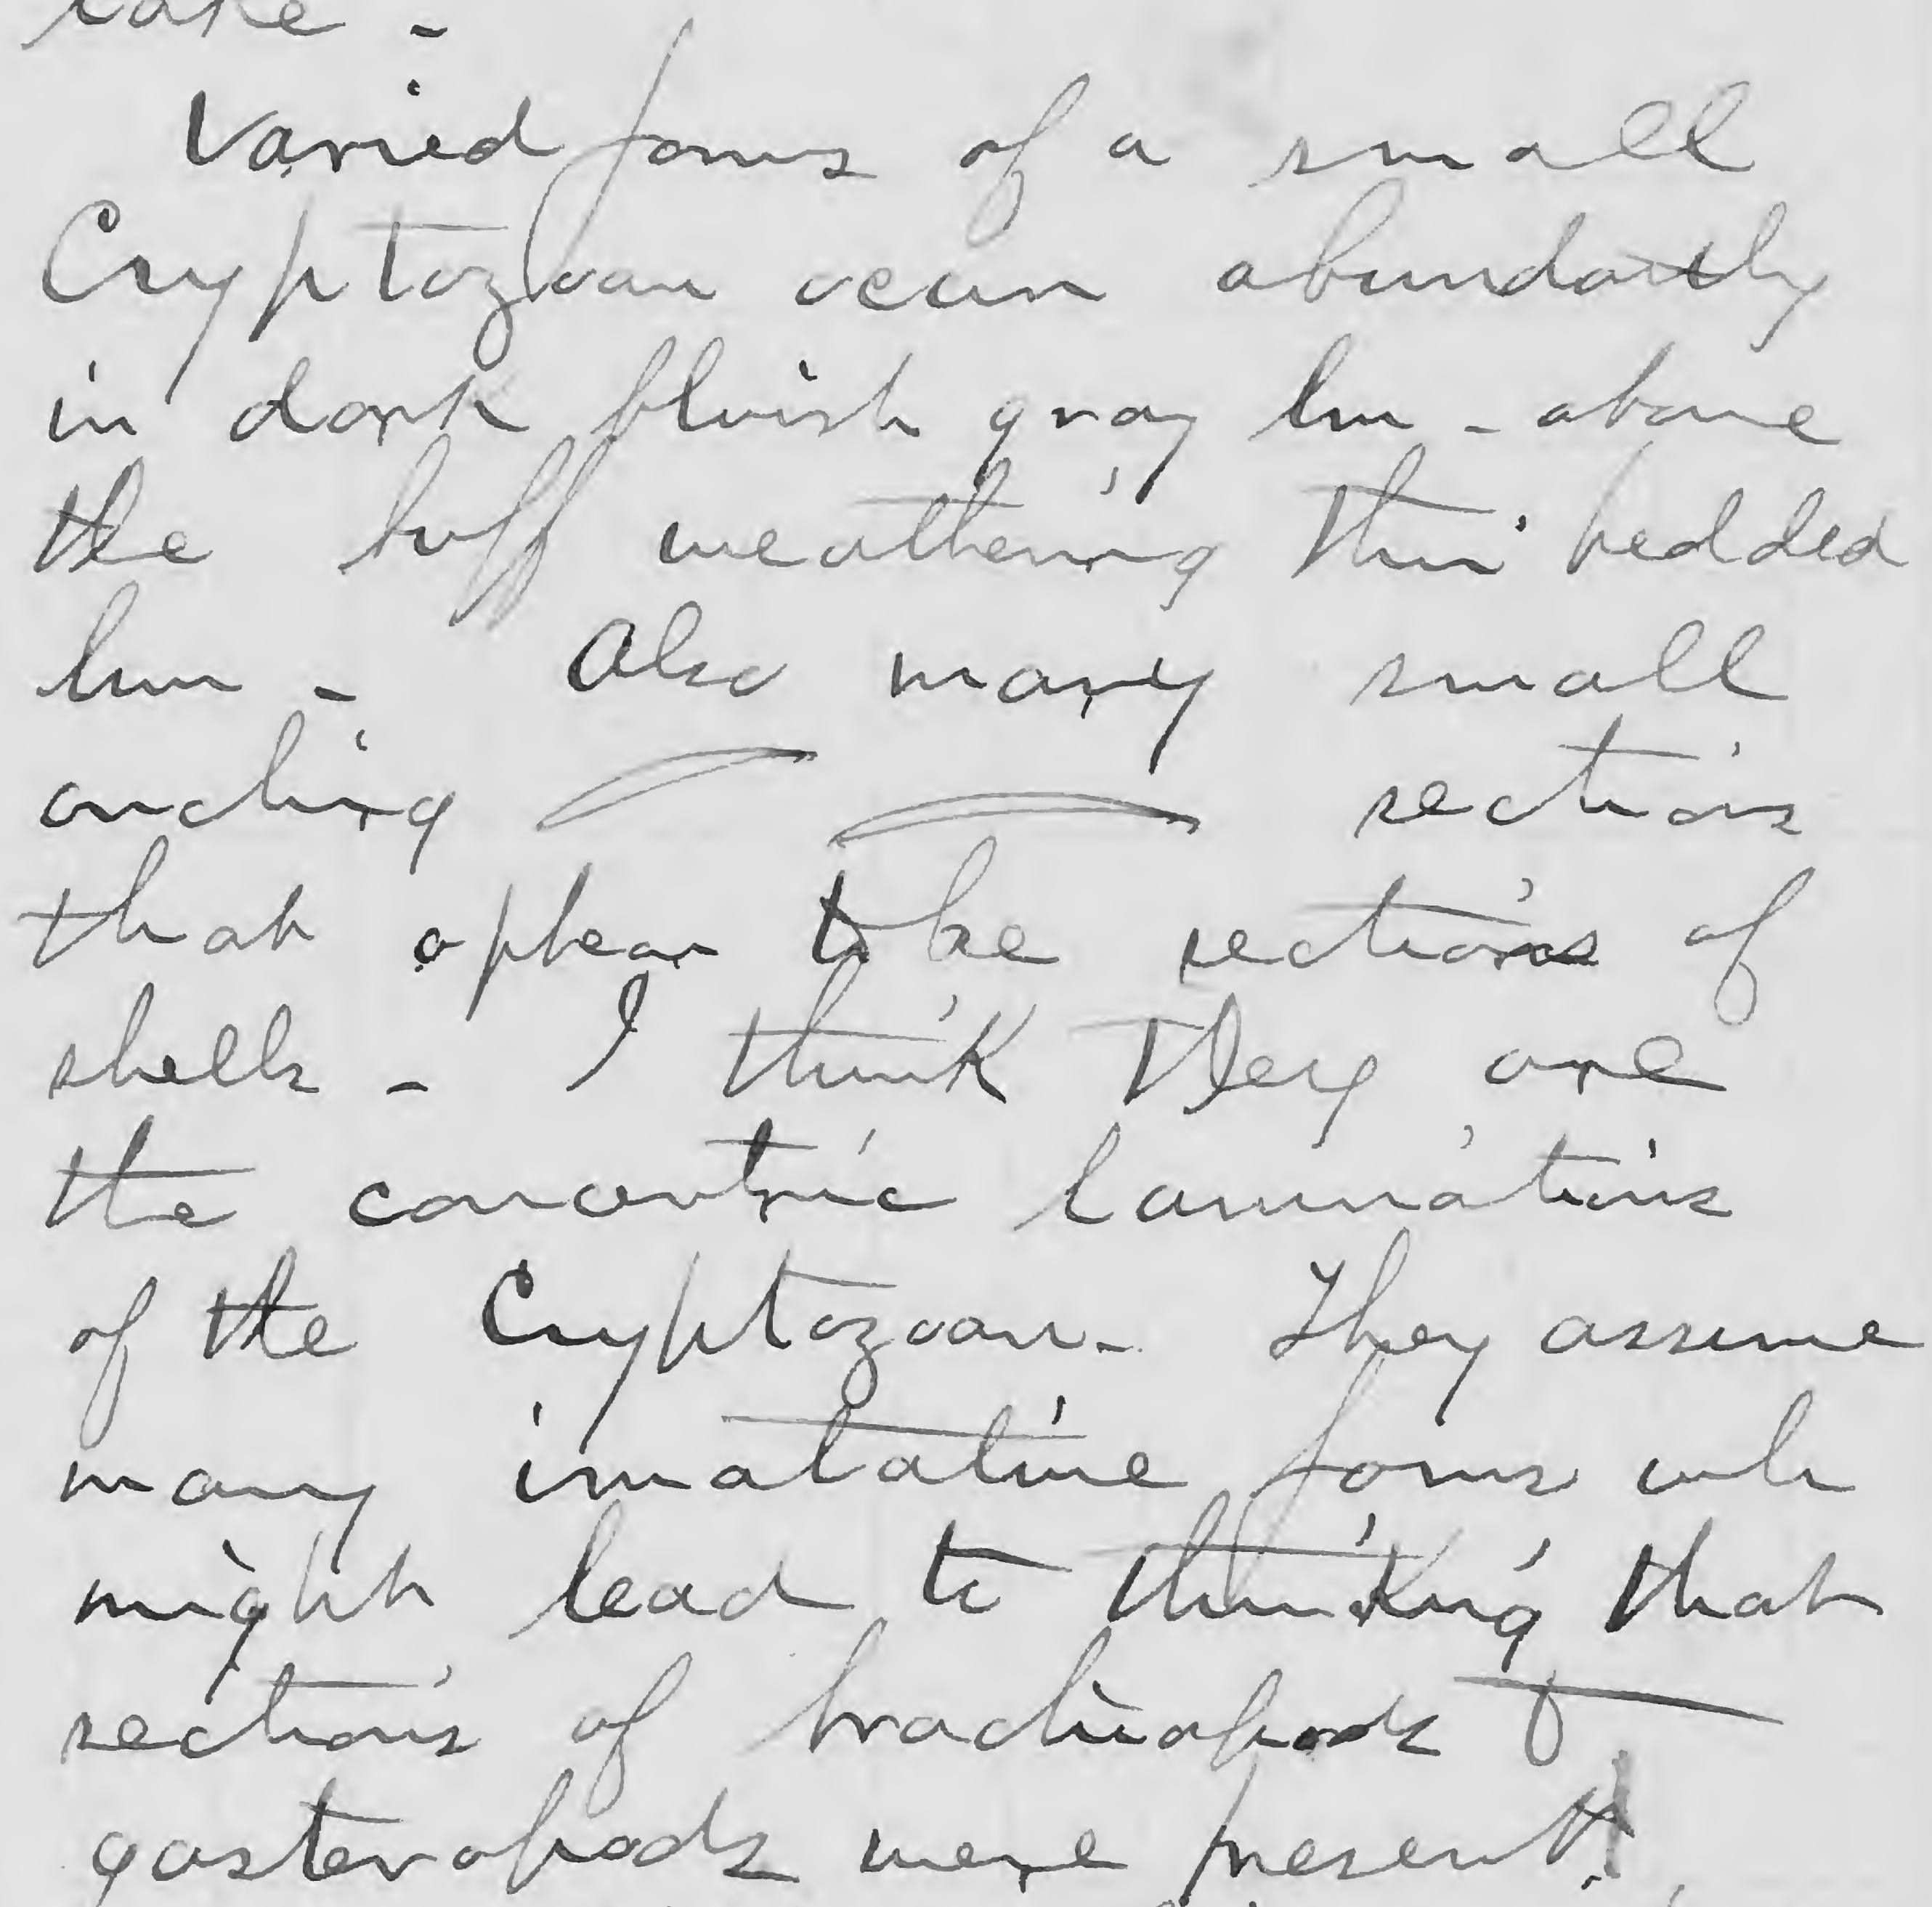 Varied forms of a small
Cryptozoan occur abundantly
in dark bluish gray lm - above
the buff weathering thin bedded
lm - Also many small
arching sections
that appear to be sections of
shells - I think they are
the concentric laminations
of the Cryptozoan - They assume
many imatative forms wh
might lead to thinking that
sections of brachiopods &
gasteropods were present!